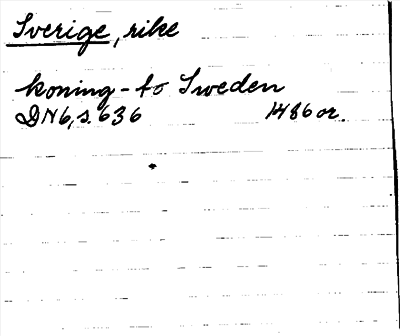 Sverige, rike
koning - to Sweden
DN 6, s. 636 1486 or.